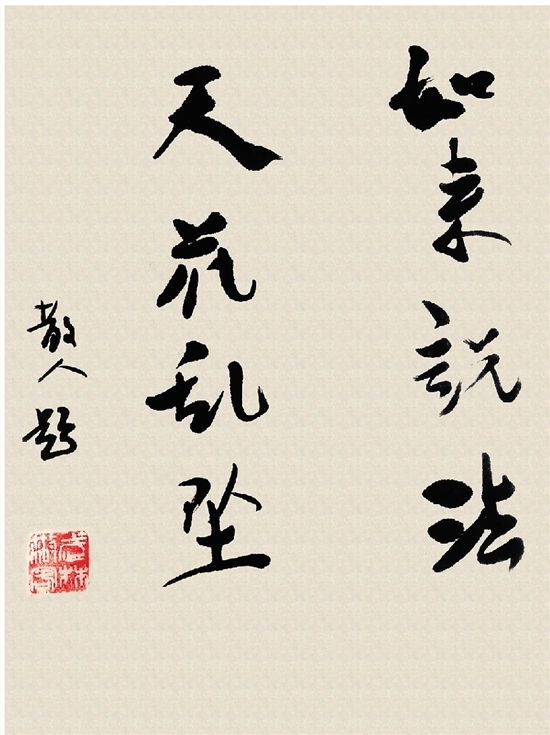 如来説法
天花乱坠
散人题